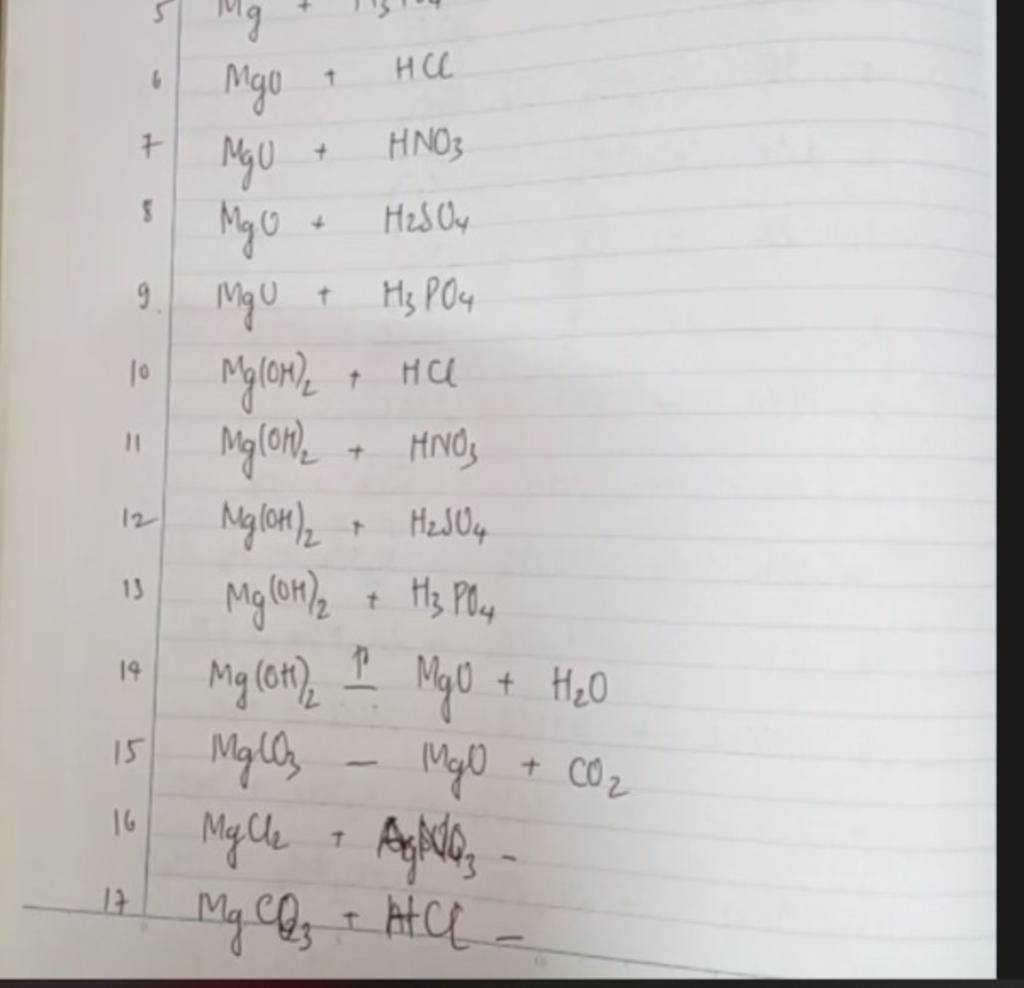 5 Mg + H3PO4
6 MgO + HCl
7 MgO + HNO3
8 MgO + H2SO4
9. MgO + H3PO4
10 Mg(OH)2 + HCl
11 Mg(OH)2 + HNO3
12 Mg(OH)2 + H2SO4
13 Mg(OH)2 + H3PO4
14 Mg(OH)2 — MgO + H2O
15 MgCO3 — MgO + CO2
16 MgCl2 + AgNO3 -
17 MgCO3 + HCl -